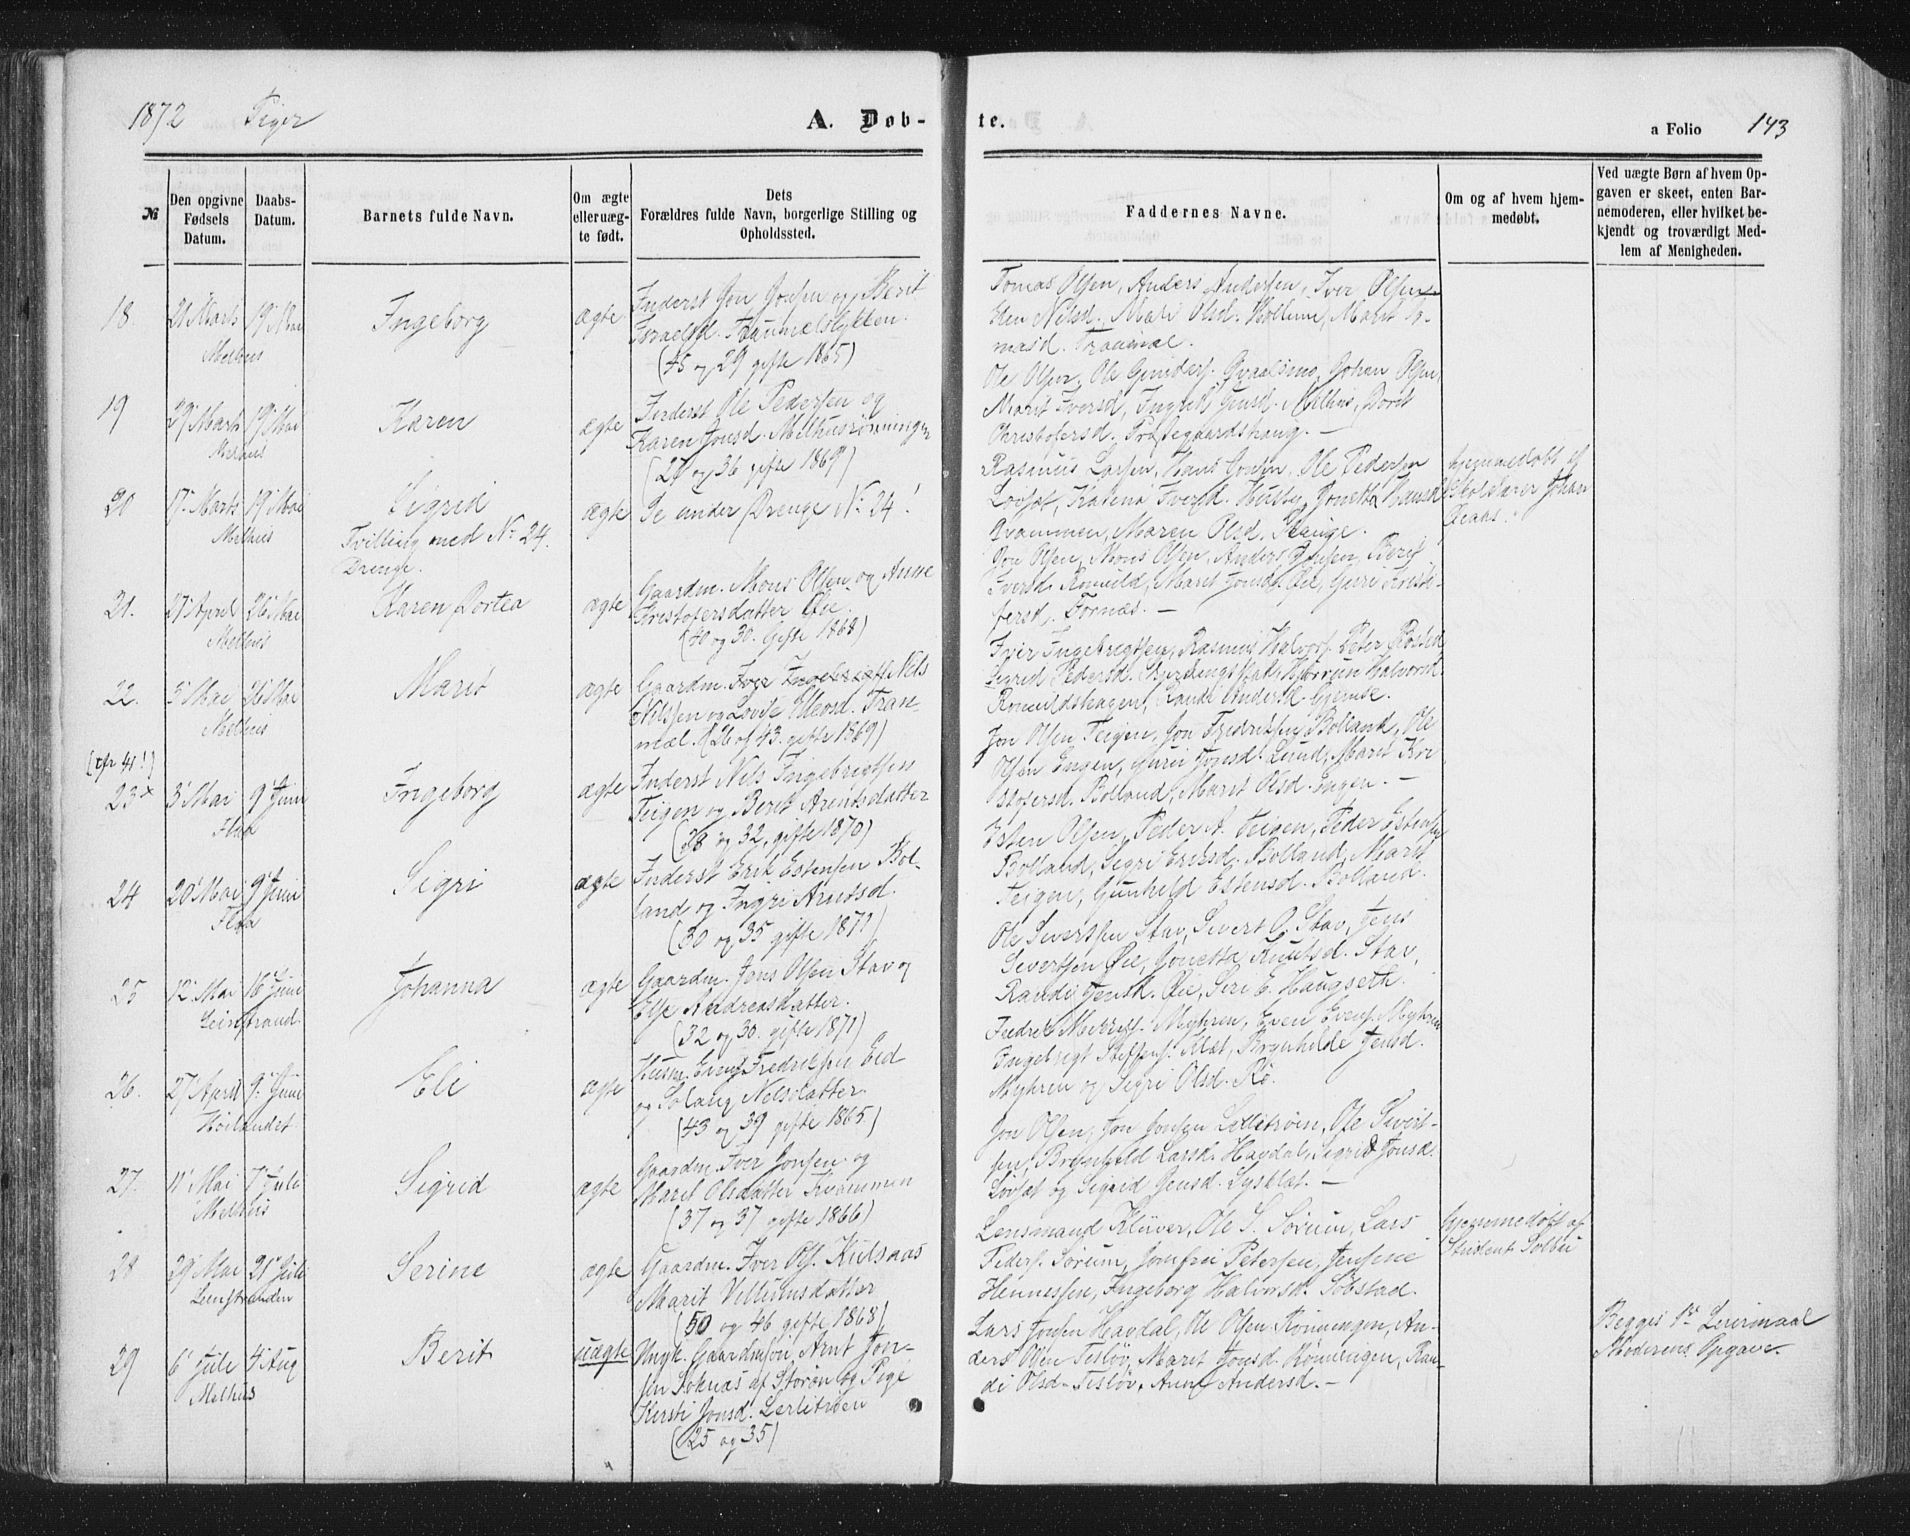 1872 Piger
A. Døb-
te.
a Folio 143
№
Den opgivne Fødsels Datum.
Daabs-Datum.
Barnets fulde Navn.
Om ægte eller uægte født.
Dets Forældres fulde Navn, borgerlige Stilling og Opholdssted.
Faddernes Navne.
Om og af hvem hjemmedøbt.
Ved uægte Børn af hvem Opgaven er skeet, enten Barnemoderen, eller hvilket bekjendt og troværdigt Medlem af Menigheden.
18. 21 Marts 19 Mai Ingeborg ægte Inderst Jon Jonsen og Berit
Melhus
Israelsd.
(45 og 29 gifte 1865)
Tomas Olsen, Anders Andersen, Iver Olsen
Elen Nilsd. Mali Olsd. Marit To-
masd. Tranmæl.
19 29 Marts 19 Mai Karen ægte Inderst Ole Pedersen og
Melhus
Karen Jonsd. Melhusrønningen
(27 og 36 gifte 1869)
Ole Olsen, Ole Johan Olsen,
Marit Iversd, Ingrid Melhus, Dorit
Christofersd.
20 17 Marts 19 Mai Sigrid ægte Se under Drenge № 24!
Melhus
Tvilling med № 24.
Drenge.
Rasmus Larsen, Hans Ole Pedersen
Løvset, Iversd. Husby,
Kvammen, Maren Olsd.
hjemmedøbt af
Skolelærer Johan
21. 27 April 26 Mai Karen Dortea ægte Gaardm. Mons Olsen og Anne
Melhus
Cristofersdatter Øie.
(40 og 30. Gifte 1868)
Jon Olsen, Mons Olsen, Anders Berit
Iversd. Marit Jonsd. Øie, Guri Kristo-
fersd. Fornæs. —
22. 5 Mai 26 Mai Marit ægte Gaardm. Nils
Melhus
Nilssen og Lovise Tran-
mæl. (26 og 43. gifte 1869)
Iver Ingebrigtsen, Rasmus Halvors. Peter
Sigrid Pedersd. Halvorsd.
Romuldshagen, Randi Andersd. Gjemse.
(cfr 41!)
23 x 3 Mai 9 Juni Ingeborg ægte Inderst Nils Ingebrigtsen
Flaa
Teigen og Berit Arentsdatter
(28 og 32, gifte 1870)
Jon Olsen Teigen, Jon Fredriksen Bolland, Ole
Olsen Engen, Guri Jonsd. Lund, Marit Kri-
stofersd. Bolland, Marit Olsd. Engen. —
24 20 Mai 9 Juni Sigri ægte Inderst Erik Estensen Bol-
Flaa
land og Ingri Arntsd.
(30 og 35 gifte 1871)
Esten Olsen, Peder A. Teigen, Peder Estensen
Bolland, Sigri Eriksd. Bolland, Marit
Teigen, Gunhild Estensd. Bolland.
25 12 Mai 16 Juni Johanna ægte Gaardm. Jens Olsen Stav og
Leinstrand.
Else Andreasdatter.
(32 og 30. gifte 1871)
Ole Sivertsen Stav, Sivert O. Stav, Jens
Sivertsen Øie, Jonetta Knutsd. Stav,
Randi Jensd. Øie, Siri E. Haugseth.
26. 27 April 9 Juni Eli ægte Husm. Even Fredriksen Eid
Høilandet
og Solaug Nilsdatter.
(43 og 39 gifte 1865)
Fredrik Myhren, Even Evens. Myhren
Ingebrigt Steffens. Klæt, Brynhilde Jensd.
Myhren og Sigri Olsd. Rø.
27. 11 Mai 7 Juli Sigrid ægte Gaardm. Iver Jonsen og
Melhus
Marit Olsdatter Kvammen
(37 og 37 gifte 1866)
Jon Olsen, Jon Jonsen Ole Sivert-
sen, Brynhild Larsd. Havdal, Sigrid Jonsd.
Løvset og Sigrid Jensd. Lysklæt. —
28 29 Mai 21 Juli Serine ægte Gaardm. Iver Ols. Kulsaas
Leinstranden
Marit Villumsdatter
(50 og 46 gifte 1868)
Lensmand Klüver, Ole S. Sørum, Lars
Peders. Sørum, Jomfru Petersen, Jensine
Hennessen, Ingeborg Halvorsd. Søbstad.
hjemmedøbt af
Student Solbu
29 6 Juli 4 Aug Berit uægte Ungk. Gaardmsøn Arnt Jon-
Melhus
sen Soknæs af Støren og Pige
Kirsti Jonsd. Lerlitrøen
(25 og 35)
Lars Jonsen Havdal, Ole Olsen Rønningen, An-
ders Olsen Tesløv, Marit Jonsd. Rønningen, Ran-
di Olsd. Tesløv, Anne Andersd. —
Begges 1ste Leiermaal
Moderens Opgave.